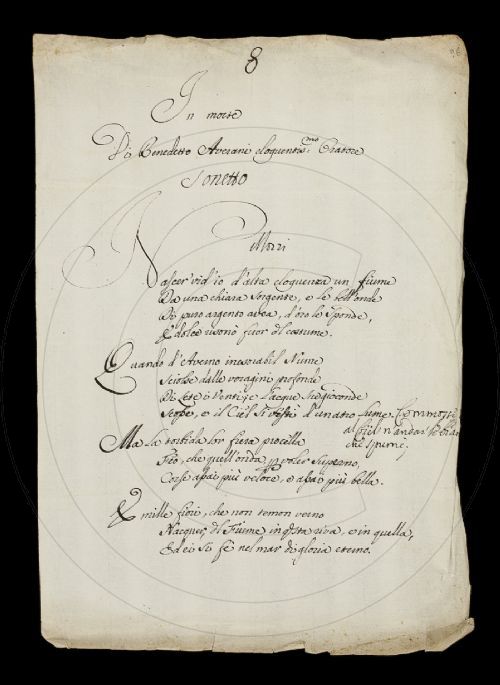 8
96
In morte
Di Benedetto Averani eloquentis.mo Oratore
Sonetto
Di
Nascer vid'io d'alta eloquenza un fiume
Da una chiara sorgente, e le bell'onde
Di puro argento avea, d'oro le sponde,
E dolce fuor del costume.
Quando d'Averno inesorabil Nume
Sciolse dalle voragini profonde
Di Lete i Venti, e l'acque
e il Ciel si vestì d'un atro lume.
al Ciel n'andar
che spume;
Ma la torbida lor fiera procella
Feo, che quell'onda, p voler Superno,
Corse assai più veloce, e assai più bella.
E mille fiori, che non temon verno
Nacquer dl Fiume in qsta riva, e in quella,
Ed ei si fè nel mar di gloria eterno.